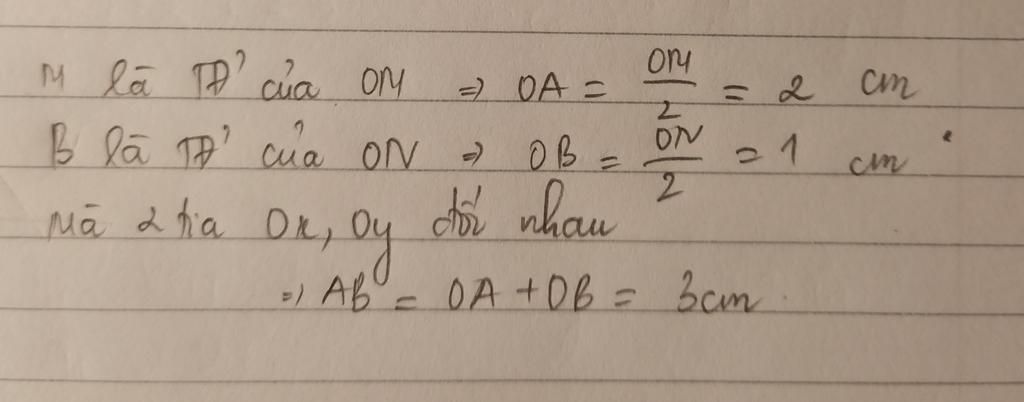 M là TĐ' của OM => OA = OM/2 = 2 cm
B là TĐ' của ON => OB = ON/2 = 1 cm
Mà 2 tia Ox, Oy đối nhau
=> AB = OA + OB = 3cm.